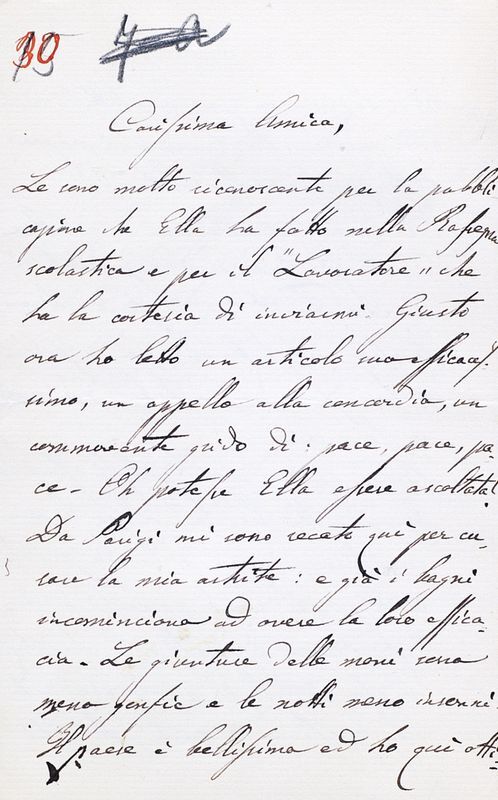 30
Carissima Amica,
Le sono molto riconoscente per la pubbli
cazione che Ella ha fatto nella Rassegna
scolastica e per il "Lavoratore" che
ha la cortesia di inviarmi. Giusto
ora ho letto un articolo suo efficacis-
simo, un appello alla concordia, un
commovente grido di: pace, pace, pa-
ce - Oh potesse Ella essere ascoltata!
Da Parigi mi sono recata qui per cu-
rare la mia artrite: e già i bagni
incominciono ad avere la loro effica-
cia - Le giunture delle mani sono
meno gonfie e le notti meno insonni.
Il paese è bellissimo ed ho qui otti-